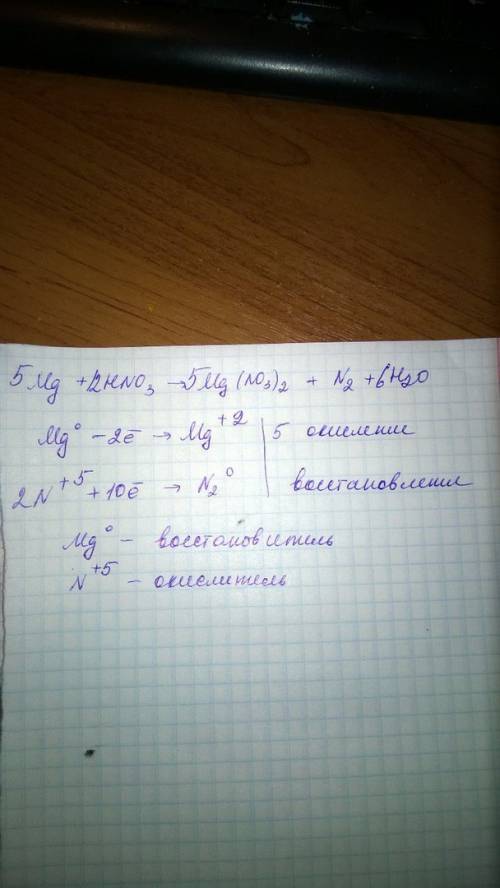 5Mg + 12HNO₃ → 5Mg(NO₃)₂ + N₂ + 6H₂O
Mg⁰ – 2ē → Mg⁺² | 5 окисление
2N⁺⁵ + 10ē → N₂⁰ | восстановления
Mg⁰ – восстановитель
N⁺⁵ – окислитель